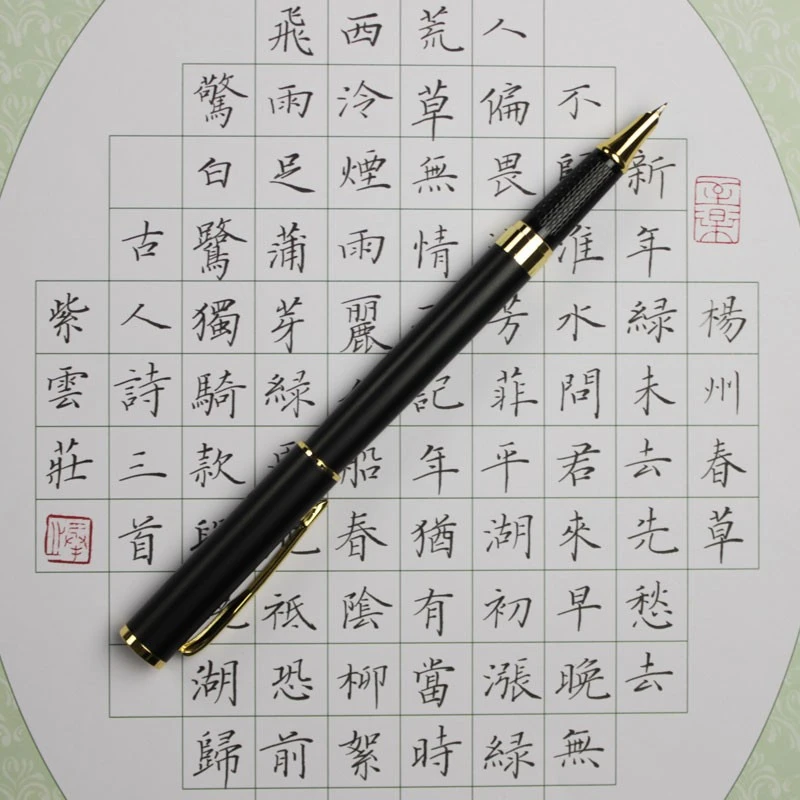 楊州春草
新年綠未去先愁去
不淮水問君來早晚無
人偏畏芳菲平湖初漲綠
荒草無情記年猶有當時
西泠煙雨麗船春陰柳絮
飛雨足蒲芽綠祗恐前
驚白鷺獨騎款湖歸
古人詩三首
紫雲莊